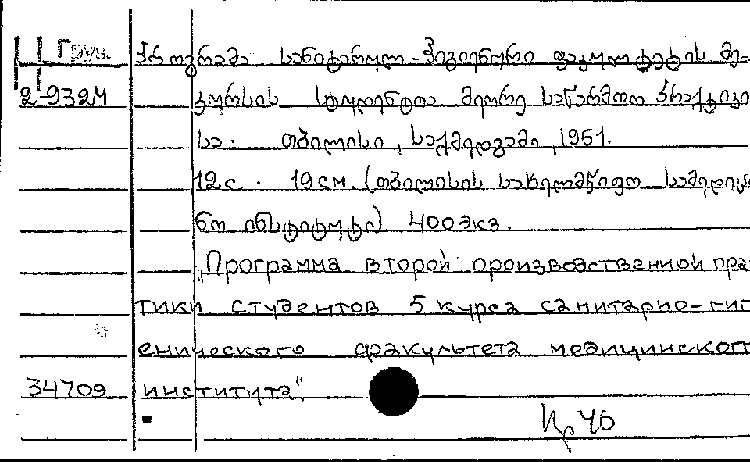 Груз. პროგრამა სანიტარულ-ჰიგიენური ფაკულტეტის მე-
2-932М კურსის სტუდენტთა მეორე საწარმოო პრაქტიკი
სა. თბილისი, საქმედგამი, 1951.
12с. 19см. (თბილისის სახელმწიფო სამედიცი
ნო ინსტიტუტი) 400экз.
„Программа второй производственной прак
тики студентов 5 курса санитарно-гиги
енического факультета медицинского
34709 института",